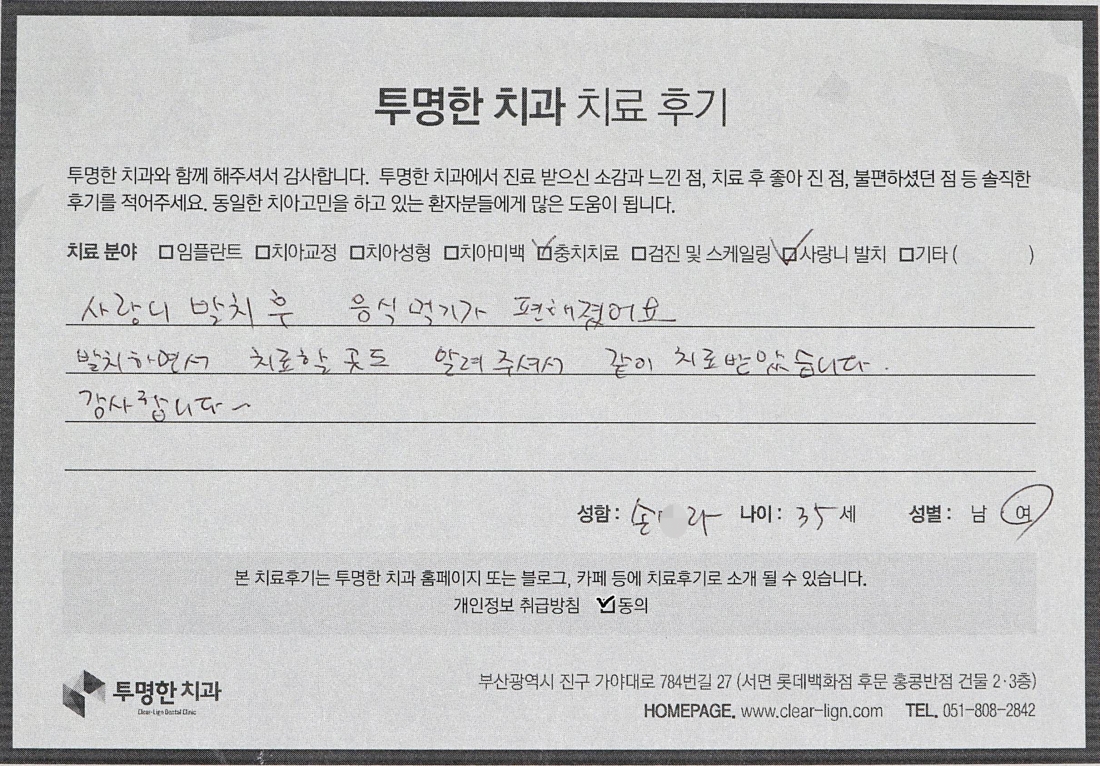 투명한 치과 치료 후기
투명한 치과와 함께 해주셔서 감사합니다. 투명한 치과에서 진료 받으신 소감과 느낀 점, 치료 후 좋아 진 점, 불편하셨던 점 등 솔직한
후기를 적어주세요. 동일한 치아고민을 하고 있는 환자분들에게 많은 도움이 됩니다.
치료 분야 □임플란트 □치아교정 □치아성형 □치아미백 ☑충치치료 □검진 및 스케일링 ☑사랑니 발치 □기타 ( )
사랑니 발치 후 음식 먹기가 편해졌어요
발치하면서 치료할 곳도 알려 주셔서 같이 치료받았습니다.
감사합니다~
성함 : 손 라 나이 : 35 세 성별 : 남 여
본 치료후기는 투명한 치과 홈페이지 또는 블로그, 카페 등에 치료후기로 소개 될 수 있습니다.
개인정보 취급방침 ☑동의
투명한 치과
Clear-Lign Dental Clinic
부산광역시 진구 가야대로 784번길 27 (서면 롯데백화점 후문 홍콩반점 건물 2·3층)
HOMEPAGE. www.clear-lign.com TEL. 051-808-2842